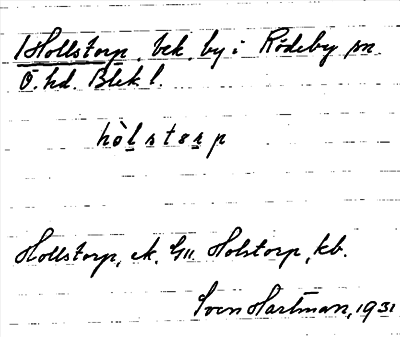 Hollstorp, bek. by i Rödeby sn.
Ö. hd. Blek l.
hòlstorp
Hollstorp, ek. GU. Holstorp, kb.
Sven Hartman, 1931